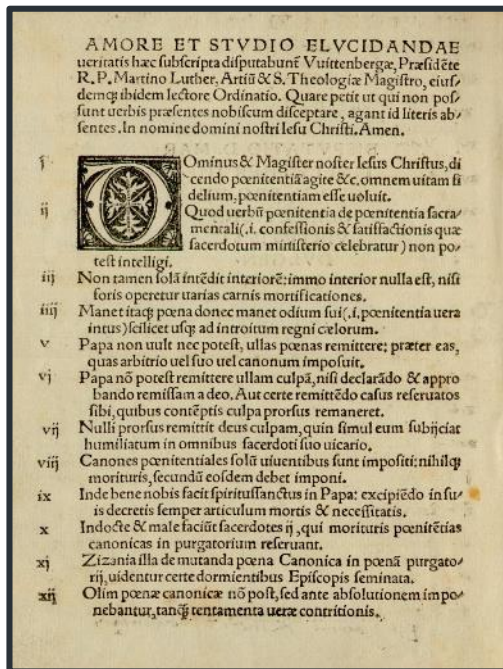 AMORE ET STVDIO ELVCIDANDAE
ueritatis hæc subscripta disputabunt̃ Vuittenbergæ, Præsidẽte
R. P. Martino Luther, Artiũ & S. Theologiæ Magistro, eius/
demq; ibidem lectore Ordinatio. Quare petit ut qui non pos/
sunt uerbis præsentes nobiscum disceptare, agant id literis ab/
sentes. In nomine domini nostri Iesu Christi. Amen.
i DOminus & Magister noster Iesus Christus, di
cendo pœnitentiã agite &c. omnem uitam fi
delium, pœnitentiam esse uoluit.
ij Quod uerbũ pœnitentia de pœnitentia sacra/
mentali (.i. confessionis & satisfactionis quæ
sacerdotum ministerio celebratur) non po/
test intelligi.
iij Non tamen solã intẽdit interiorẽ: immo interior nulla est, nisi
foris operetur uarias carnis mortificationes.
iiij Manet itaq; pœna donec manet odium sui (.i. pœnitentia uera
intus) scilicet usq; ad introitum regni cælorum.
v Papa non uult nec potest, ullas pœnas remittere: præter eas,
quas arbitrio uel suo uel canonum imposuit.
vj Papa nõ potest remittere ullam culpã, nisi declarãdo & appro
bando remissam a deo. Aut certe remittẽdo casus reseruatos
sibi, quibus contẽptis culpa prorsus remaneret.
vij Nulli prorsus remittit deus culpam, quin simul eum subijciat
humiliatum in omnibus sacerdoti suo uicario.
viij Canones pœnitentiales solũ uiuentibus sunt impositi: nihilq;
morituris, secundũ eosdem debet imponi.
ix Inde bene nobis facit spiritussanctus in Papa: excipiẽdo in su/
is decretis semper articulum mortis & necessitatis.
x Indocte & male faciũt sacerdotes ij, qui morituris pœnitẽtias
canonicas in purgatorium reseruant.
xj Zizania illa de mutanda pœna Canonica in pœnã purgato/
rij, uidentur certe dormientibus Episcopis seminata.
xij Olim pœnæ canonicæ nõ post, sed ante absolutionem impo
nebantur, tanq̃ tentamenta ueræ contritionis.